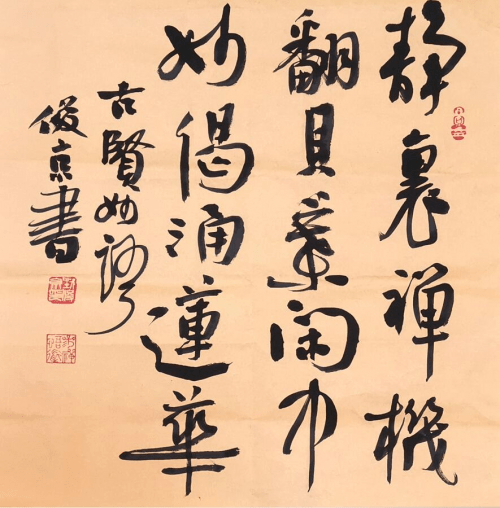 静裏禅機
翻貝葉闲中
妙偈涌蓮華
古賢妙語
俊京書